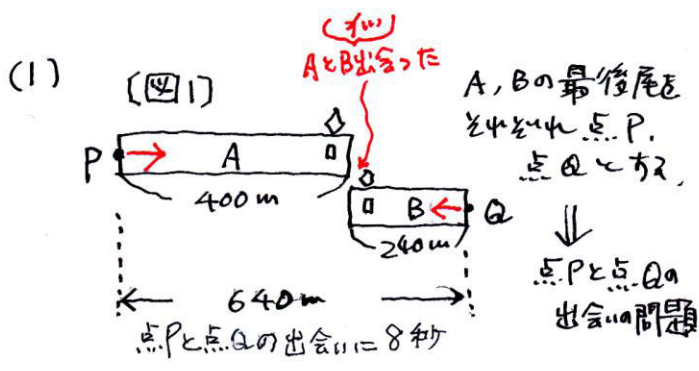 (1)
[図1]
AとB出会った
P
A
400m
B
Q
240m
640m
点Pと点Qの出会いに8秒
A, Bの最後尾を
それぞれ点P,
点Qとする,
⇓
点Pと点Qの
出会いの問題